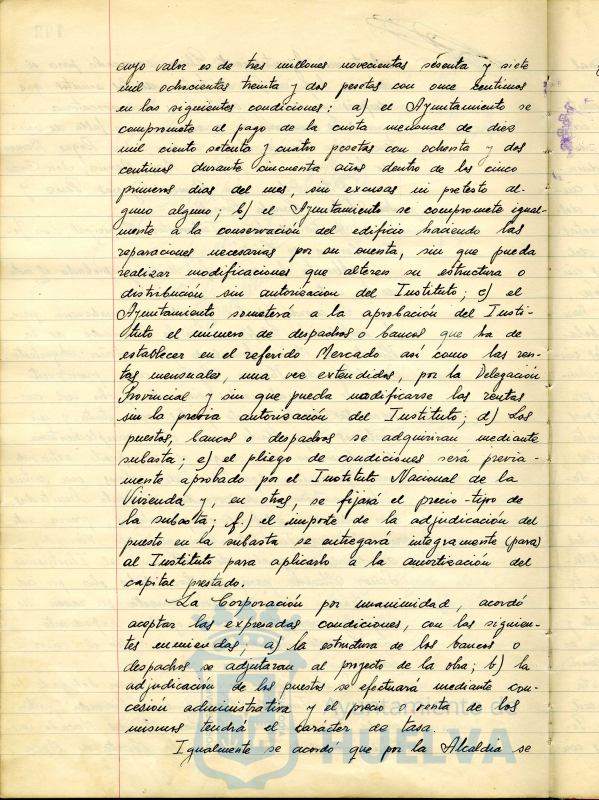 cuyo valor es de tres millones novecientas sesenta y siete
mil ochocientas treinta y dos pesetas con once centimos
en las siguientes condiciones: a) el Ayuntamiento se
compromete al pago de la cuota mensual de diez
mil ciento setenta y cuatro pesetas con ochenta y dos
centimos durante cincuenta años dentro de los cinco
primeros dias del mes, sin excusas ni pretesto al-
guno alguno; b) el Ayuntamiento se compromete igual-
mente a la conservación del edificio haciendo las
reparaciones necesarias por su cuenta, sin que pueda
realizar modificaciones que alteren su estructura o
distribución sin autorizacion del Instituto; c) el
Ayuntamiento someterá a la aprobación del Insti-
tuto el número de despachos o bancos que ha de
establecer en el referido Mercado asi como las ren-
tas mensuales, una vez extendidos, por la Delegación
Provincial y sin que pueda modificarse las rentas
sin la previa autorización del Instituto; d) Los
puestos, bancos o despachos se adquiriran mediante
subasta; e) el pliego de condiciones será previa-
mente aprobado por el Instituto Nacional de la
Vivienda y, en otras, se fijará el precio-tipo de
la subasta; f.) el importe de la adjudicación del
puesto en la subasta se entregará integramente (para)
al Instituto para aplicarlo a la amortización del
capital prestado.
La Corporación por unanimidad, acordó
aceptar las expresadas condiciones, con las siguien-
tes enmiendas; a) la estructura de los bancos o
despachos se adjutaran al proyecto de la obra; b) la
adjudicacion de los puestos se efectuará mediante con-
cesión administrativa y el precio o renta de los
mismos tendrá el carácter de tasa.
Igualmente se acordó que por la Alcaldia se
Ayuntamiento de
HUELVA